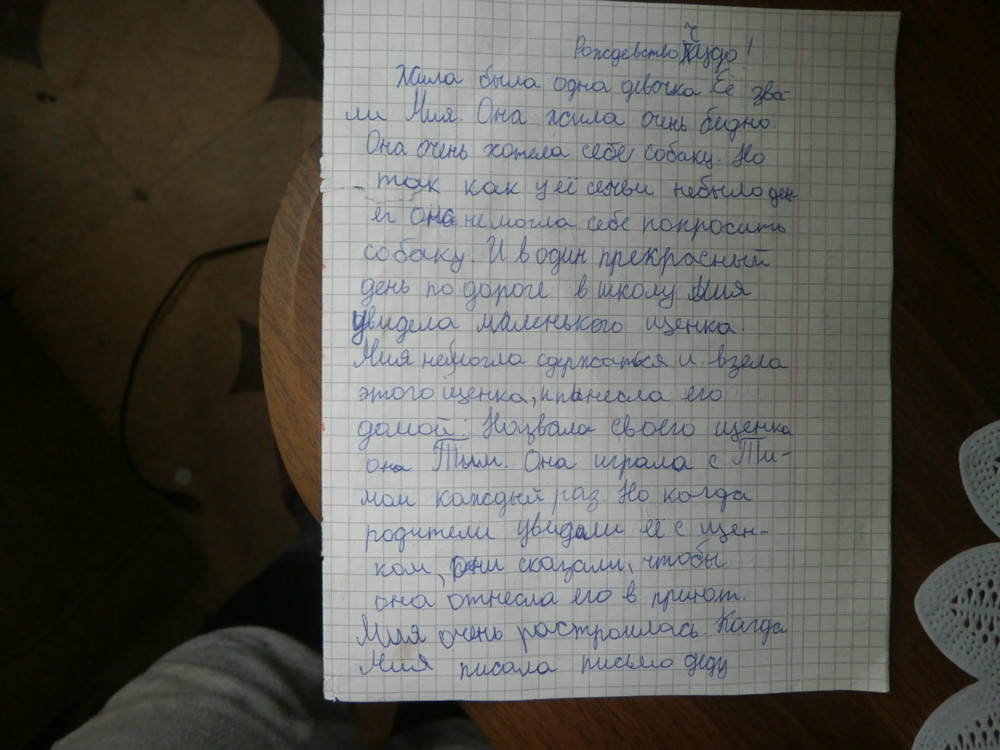 Рождевство Чудо!
Жила была одна девочка Её зва-
ли Мия. Она жила очень бедно.
Она очень хотела себе собаку. Но
так как у её семьи небыло ден-
ег она не могла себе попросить
собаку. И в один прекрасный
день по дороге в школу Мия
увидела маленького щенка.
Мия несмогла сдержаться и взела
этого щенка, и принесла его
домой. Назвала своего щенка
она Тим. Она играла с Ти-
мом каждый раз. Но когда
родители увидели её с щен-
ком, они сказали, чтобы
она отнесла его в приют.
Мия очень растроилась. Кагда
Мия писала письмо деду